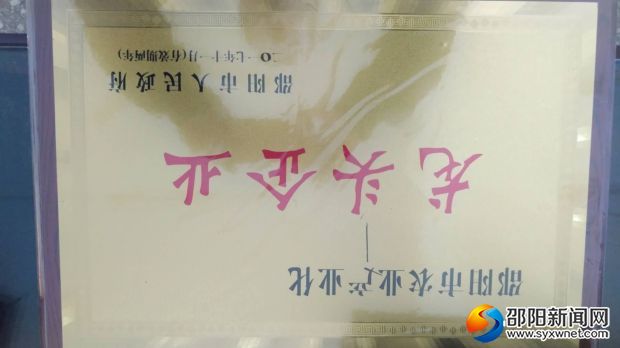 邵阳市农业产业化
龙头企业
邵阳市人民政府
二〇一七年十一月(有效期两年)
邵阳新闻网
www.syxwnet.com